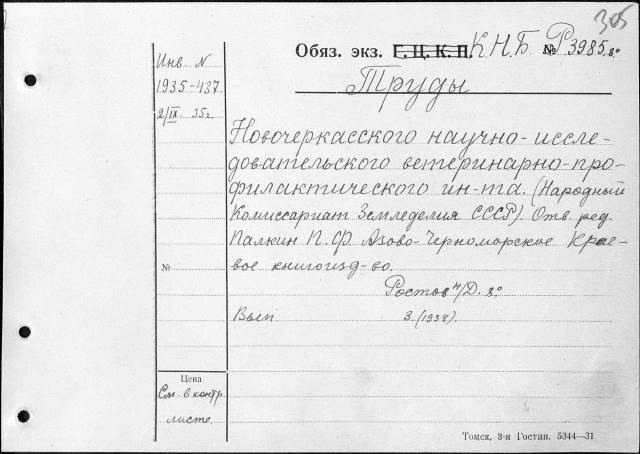 305
Обяз. экз. Г.Ц.К.П. К.Н.Б. № Р3985 8°
Инв. N
1935-437
2/IX 35г.
Труды
Новочеркасского научно-иссле-
довательского ветеринарно-про-
филактического ин-та. (Народный
Комиссариат Земледелия СССР). Отв. ред.
Палкин П. Ф. Азово-Черноморское Крае-
вое книгоизд-во.
№
Ростов н/Д. 8°
Вып 3. (1934).
Цена
См. в контр.
листе.
Томск, 3-я Гостип. 5344—31